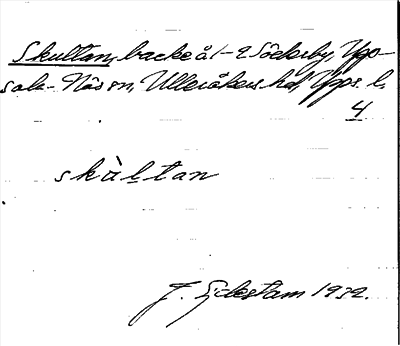 Skultan, backe å 1–2 Söderby, Upp-
sala-Näs sn, Ulleråkers hd, Upps. l.
4
skùltan
F. Ejdestam 1932.